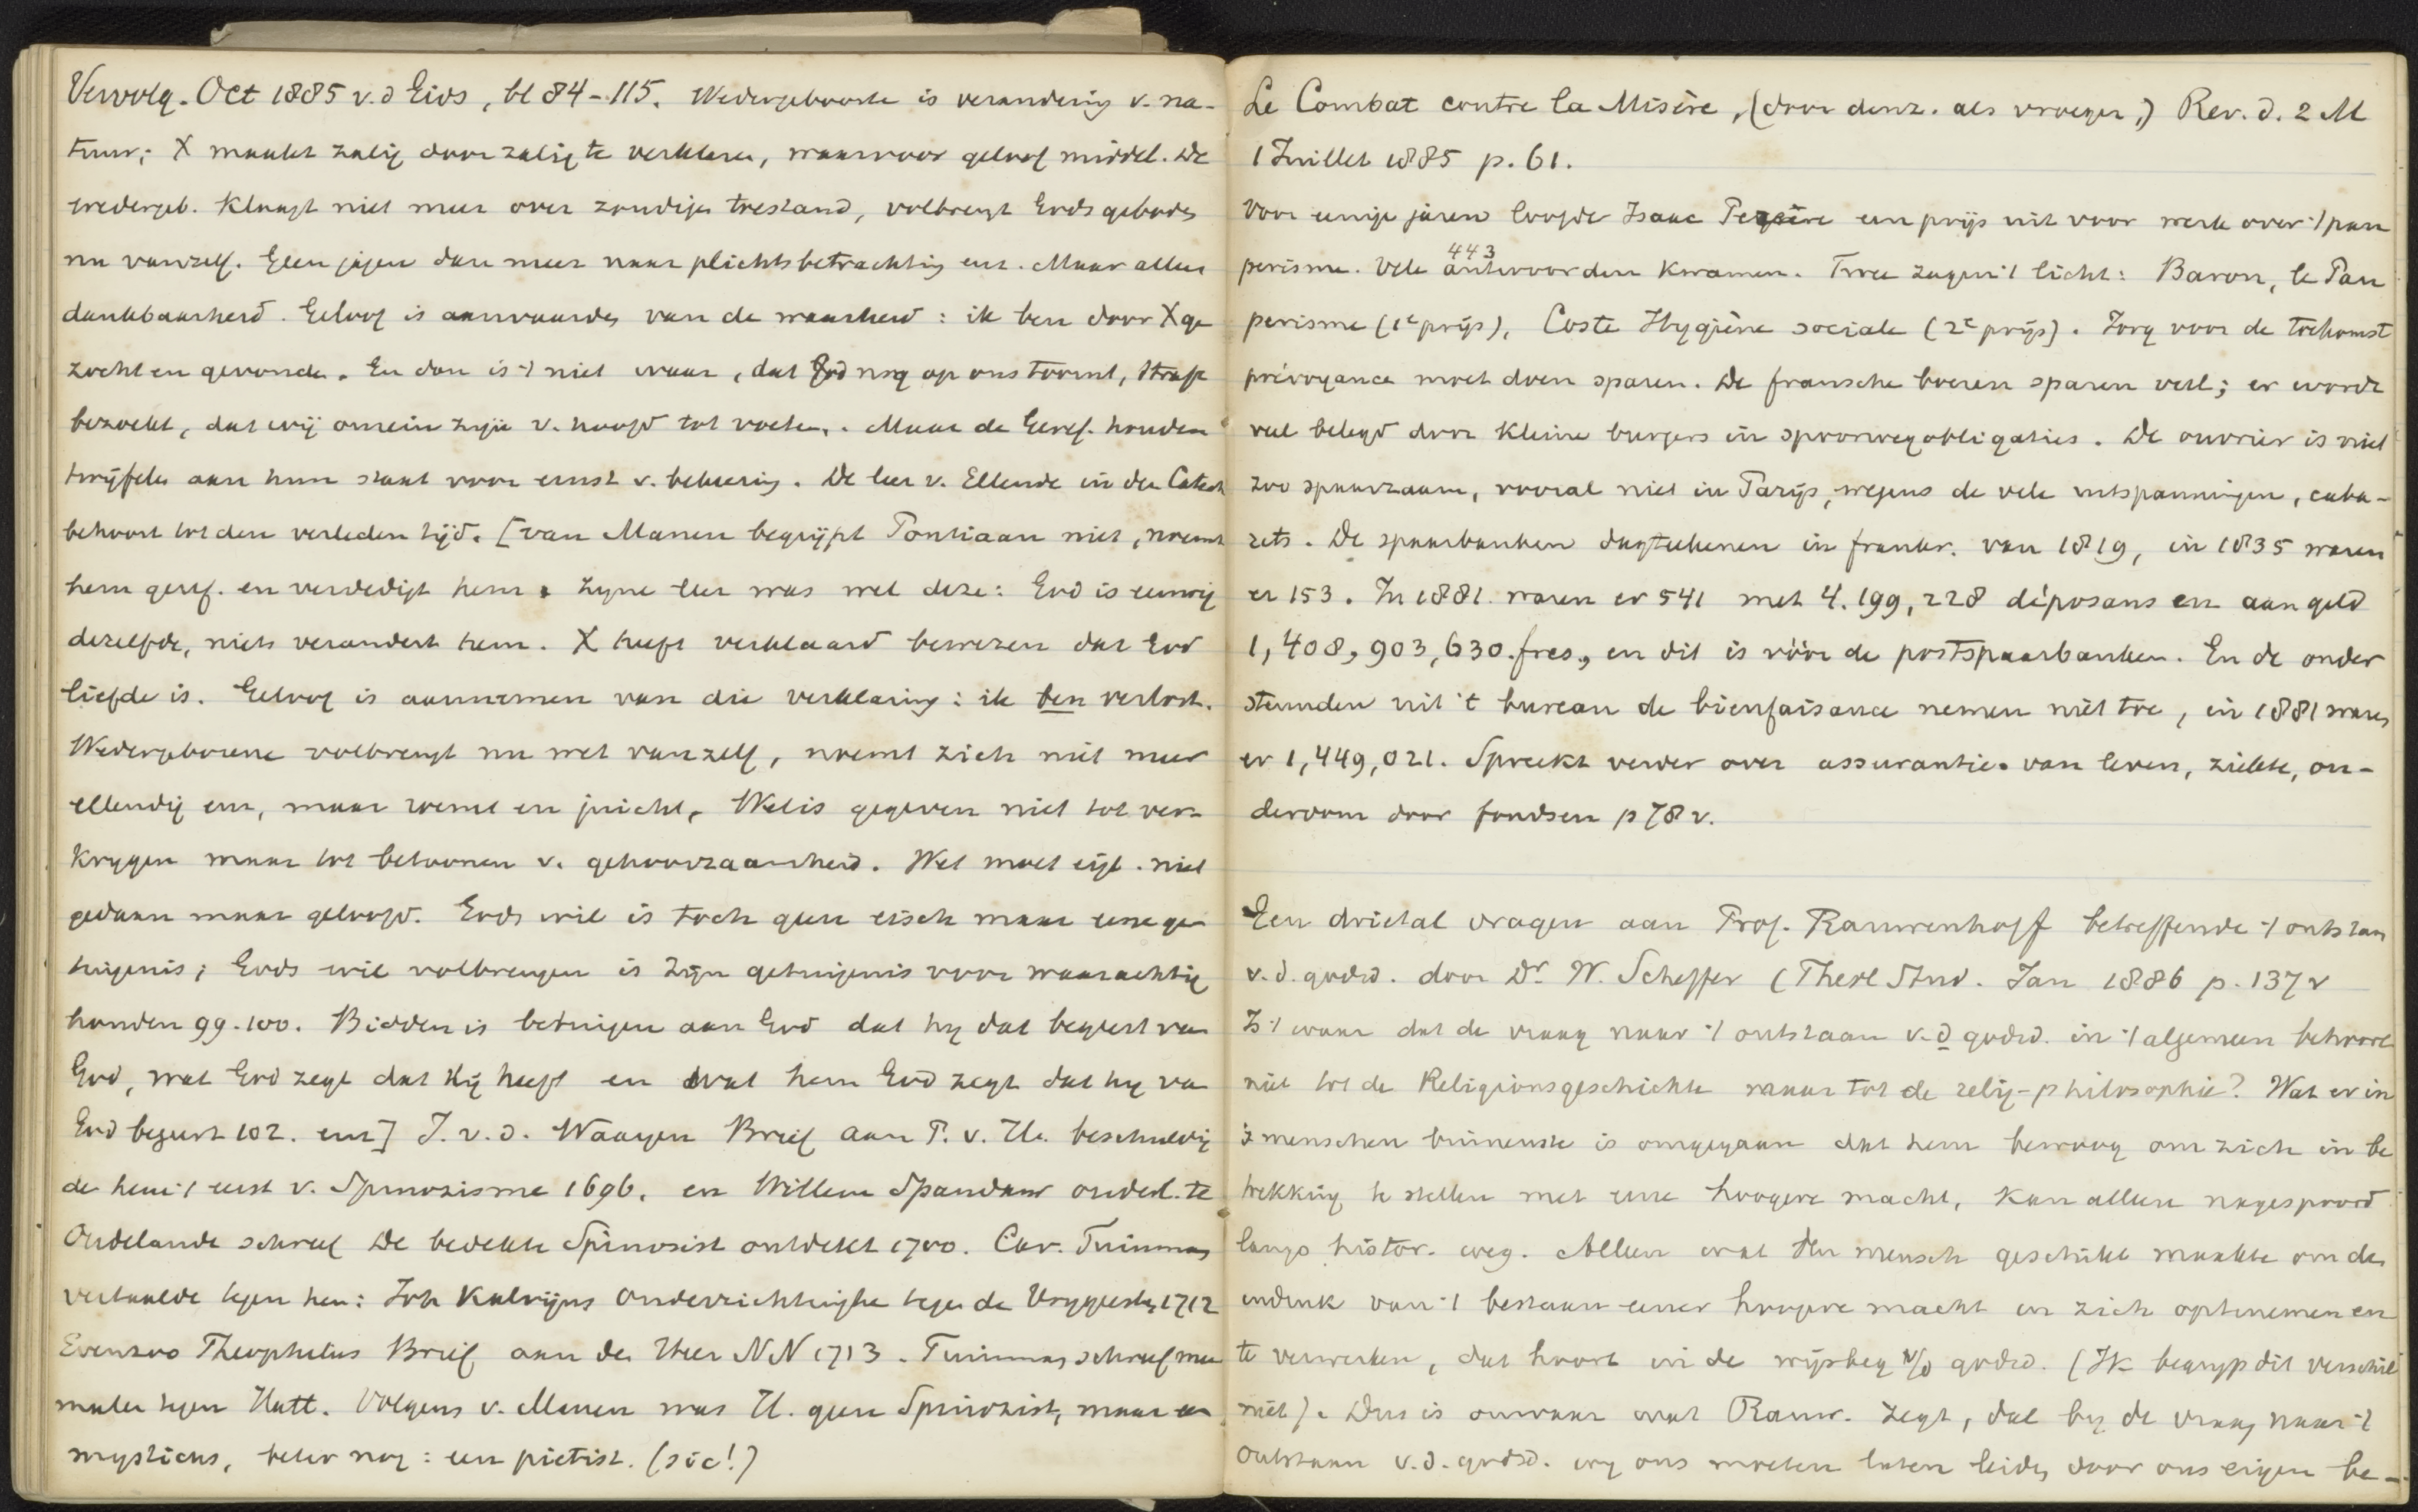 Vervolg. Oct 1885 v. d Gids, bl 84-115. Wedergeboorte is verandering v. na-
tuur; X maakt zalig door zalig te verklaren, waarvoor geloof middel. De
wedergeb. klaagt niet meer over zondige toestand, volbrengt Gods geboden
nu vanzelf. Geen jagen dan meer naar plichtsbetrachting enz. Maar alleen
dankbaarheid. Geloof is aanvaarden van de waarheid: ik ben door X ge
zocht en gevonden. En dan is 't niet waar, dat God nog op ons toornt, straft
bezoekt, dat wij onrein zijn v. hoofd tot voeten. Maar de Geref. houden
twijfelen aan hun staat voor ernst v. bekeering. De leer v. Ellende in den Catech
behoort tot den verleden tijd. [van Manen begrijpt Pontiaan niet, noemt
hem geref. en verdedigt hem. Zyne leer was wel deze: God is eeuwig
dezelfde, niets verandert hem. X heeft verklaard bewezen dat God
liefde is. Geloof is aannemen van die verklaring: ik ben verlost.
Wedergeborene volbrengt nu wet vanzelf, noemt zich niet meer
ellendig enz, maar roemt en juicht. Wet is gegeven niet tot ver-
krygen maar tot betoonen v. gehoorzaamheid. Wet moet eigl. niet
gedaan maar geloofd. Gods wil is toch geen eisch maar eene ge
tuigenis; Gods wil volbrengen is Zijn getuigenis voor waarachtig
houden 99-100. Bidden is betuigen aan God dat hy dat begeert van
God, wat God zegt dat Hij heeft en wat hem God zegt dat hy van
God begeert 102. enz] J. v. d. Waayen Brief aan P. v. H. beschuldig
de hem 't eerst v. Spinozisme 1696. en Willem Spandaw ouderl. te
Oudelande schreef De bedekte Spinosist ontdekt 1700. Car. Tuinman
vertaalde tegen hen: Joh Kalvijns Onderrichtinghe tegen de Vrygeesten 1712
Evenzoo Theophilus Brief aan den Heer NN 1713. Tuinman schreef meer
malen tegen Hatt. Volgens v. Manen was H. geen Spinozist, maar een
mysticus, beter nog: een pietist. (sic!)
Le Combat contre la Misère, (door denz. als vroeger,) Rev. d. 2 M
1 Juillet 1885 p. 61.
Voor eenige jaren loofde Isaac Pereire een prijs uit voor werk over 't pau
perisme. Vele 443 antwoorden kwamen. Twee zagen 't licht: Baron, le Pau
perisme (1e prijs), Coste Hygiène sociale (2e prijs). Zorg voor de toekomst
prévoyance moet doen sparen. De fransche boeren sparen veel; er wordt
veel belegd door kleine burgers in spoorwegobligaties. De ouvrier is niet
zoo spaarzaam, vooral niet in Parijs, wegens de vele uitspanningen, caba-
rets. De spaarbanken dagteekenen in frankr. van 1819, in 1835 waren
er 153. In 1881. waren er 541 met 4.199,228 déposans en aan geld
1,408,903,630. frcs, en dit is vóór de postspaarbanken. En de onder
steunden uit 't bureau de bienfaisance nemen niet toe, in 1881 waren
er 1,449,021. Spreekt verder over assurantie van leven, ziekte, ou-
derdom door fondsen p 78 v.
Een drietal vragen aan Prof. Rauwenhoff betreffende 't ontstaan
v. d. godsd. door Dr W. Scheffer (Theol Stud. Jan 1886 p. 137 v
Is 't waar dat de vraag naar 't ontstaan v. d godsd. in 't algemeen behoort
niet tot de Religionsgeschichte maar tot de relig-philosophie? Wat er in
's menschen binnenste is omgegaan dat hem bewoog om zich in be
trekking te stellen met eene hoogere macht, kan alleen nagespoord
langs histor. weg. Alleen wat den mensch geschikt maakte om den
indruk van 't bestaan eener hoogere macht in zich optenemen en
te verwerken, dat hoort in de wijsbeg v/d godsd. (Ik begryp dit verschil
niet). Dus is onwaar wat Rauw. zegt, dat by de vraag naar 't
ontstaan v. d. godsd. wy ons moeten laten leiden door ons eigen be-